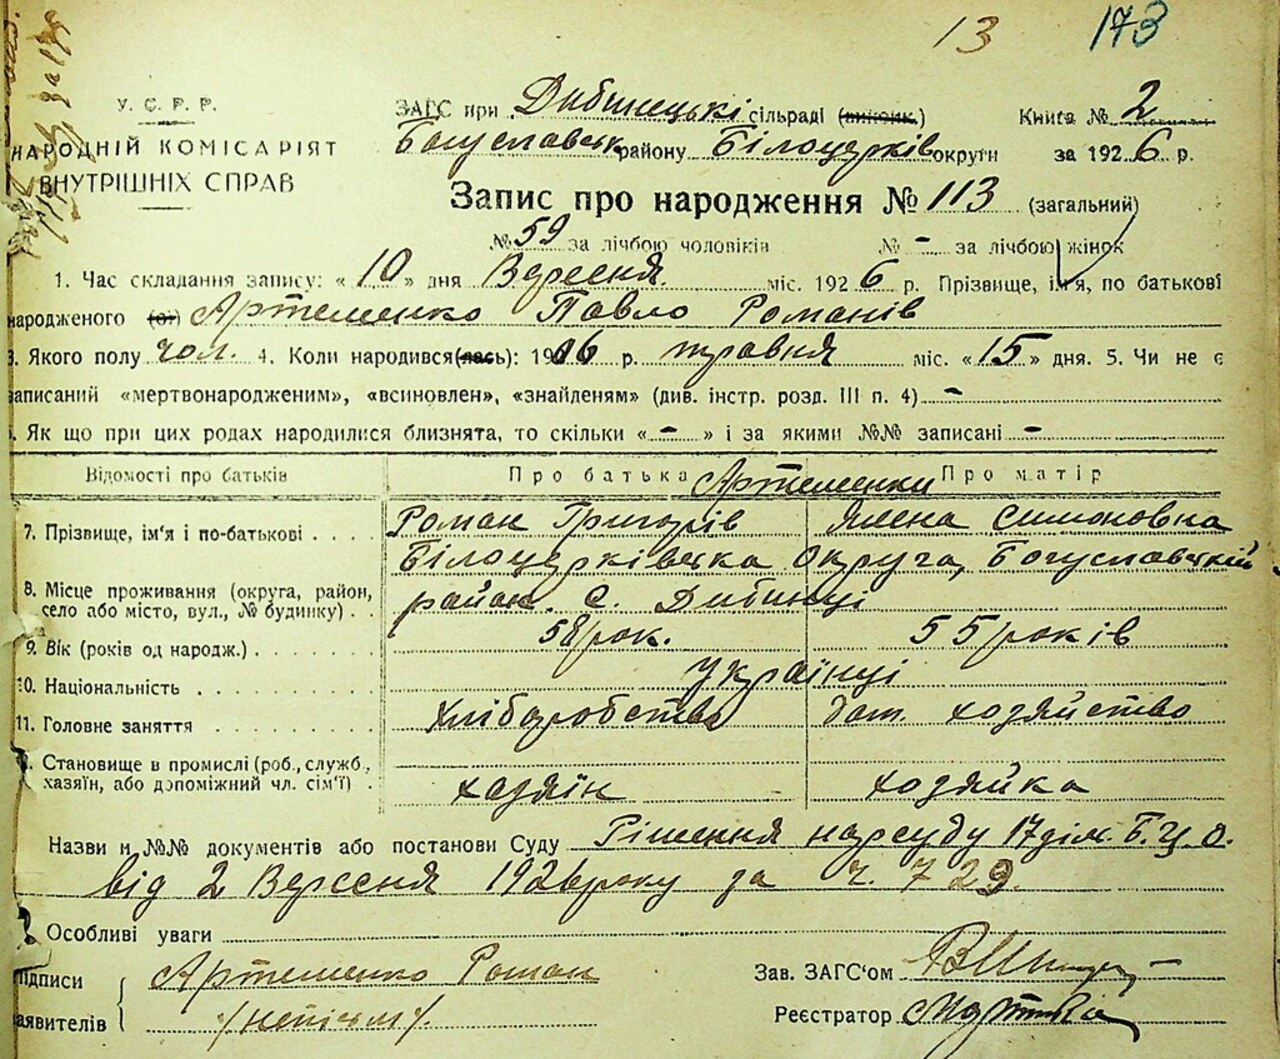 13 173
У. С. Р. Р.
НАРОДНІЙ КОМІСАРІЯТ
ВНУТРІШНІХ СПРАВ
ЗАГС при Дибинецькі сільраді (виконк.) Книга № 2
Богуславськ району Білоцерків округи за 1926 р.
Запис про народження № 113 (загальний)
№ 59 за лічбою чоловіків № - за лічбою жінок
1. Час складання запису: «10» дня Вересня міс. 1926 р. Прізвище, ім'я, по батькові
народженого (ої) Артеменко Павло Романів
3. Якого полу чол. 4. Коли народився(лась): 1906 р. травня міс. «15» дня. 5. Чи не є
записаний «мертвонародженим», «всиновлен», «знайденям» (див. інстр. розд. III п. 4) -
. Як що при цих родах народилися близнята, то скільки « - » і за якими №№ записані -
Відомості про батьків Про батька Про матір
Артеменки
7. Прізвище, ім'я і по-батькові Роман Григорів Ялена Симоновка
Білоцерківська Округа, Богуславський
8. Місце проживання (округа, район,
село або місто, вул., № будинку) район. С. Дибинці
9. Вік (років од народж.) 58 рок. 55 років
10. Національність Українці
11. Головне заняття Хліборобство дом. хозяйство
Становище в промислі (роб., служб.,
хазяїн, або допоміжний чл. сім'ї) хазяїн хозяйка
Назви и №№ документів або постанови Суду Рішення нарсуду 17 діл. Б. Ц. О.
від 2 Вересня 1926 року за ч. 729.
Особливі уваги
підписи Артеменко Роман Зав. ЗАГС'ом
заявителів /неписьм/. Реєстратор